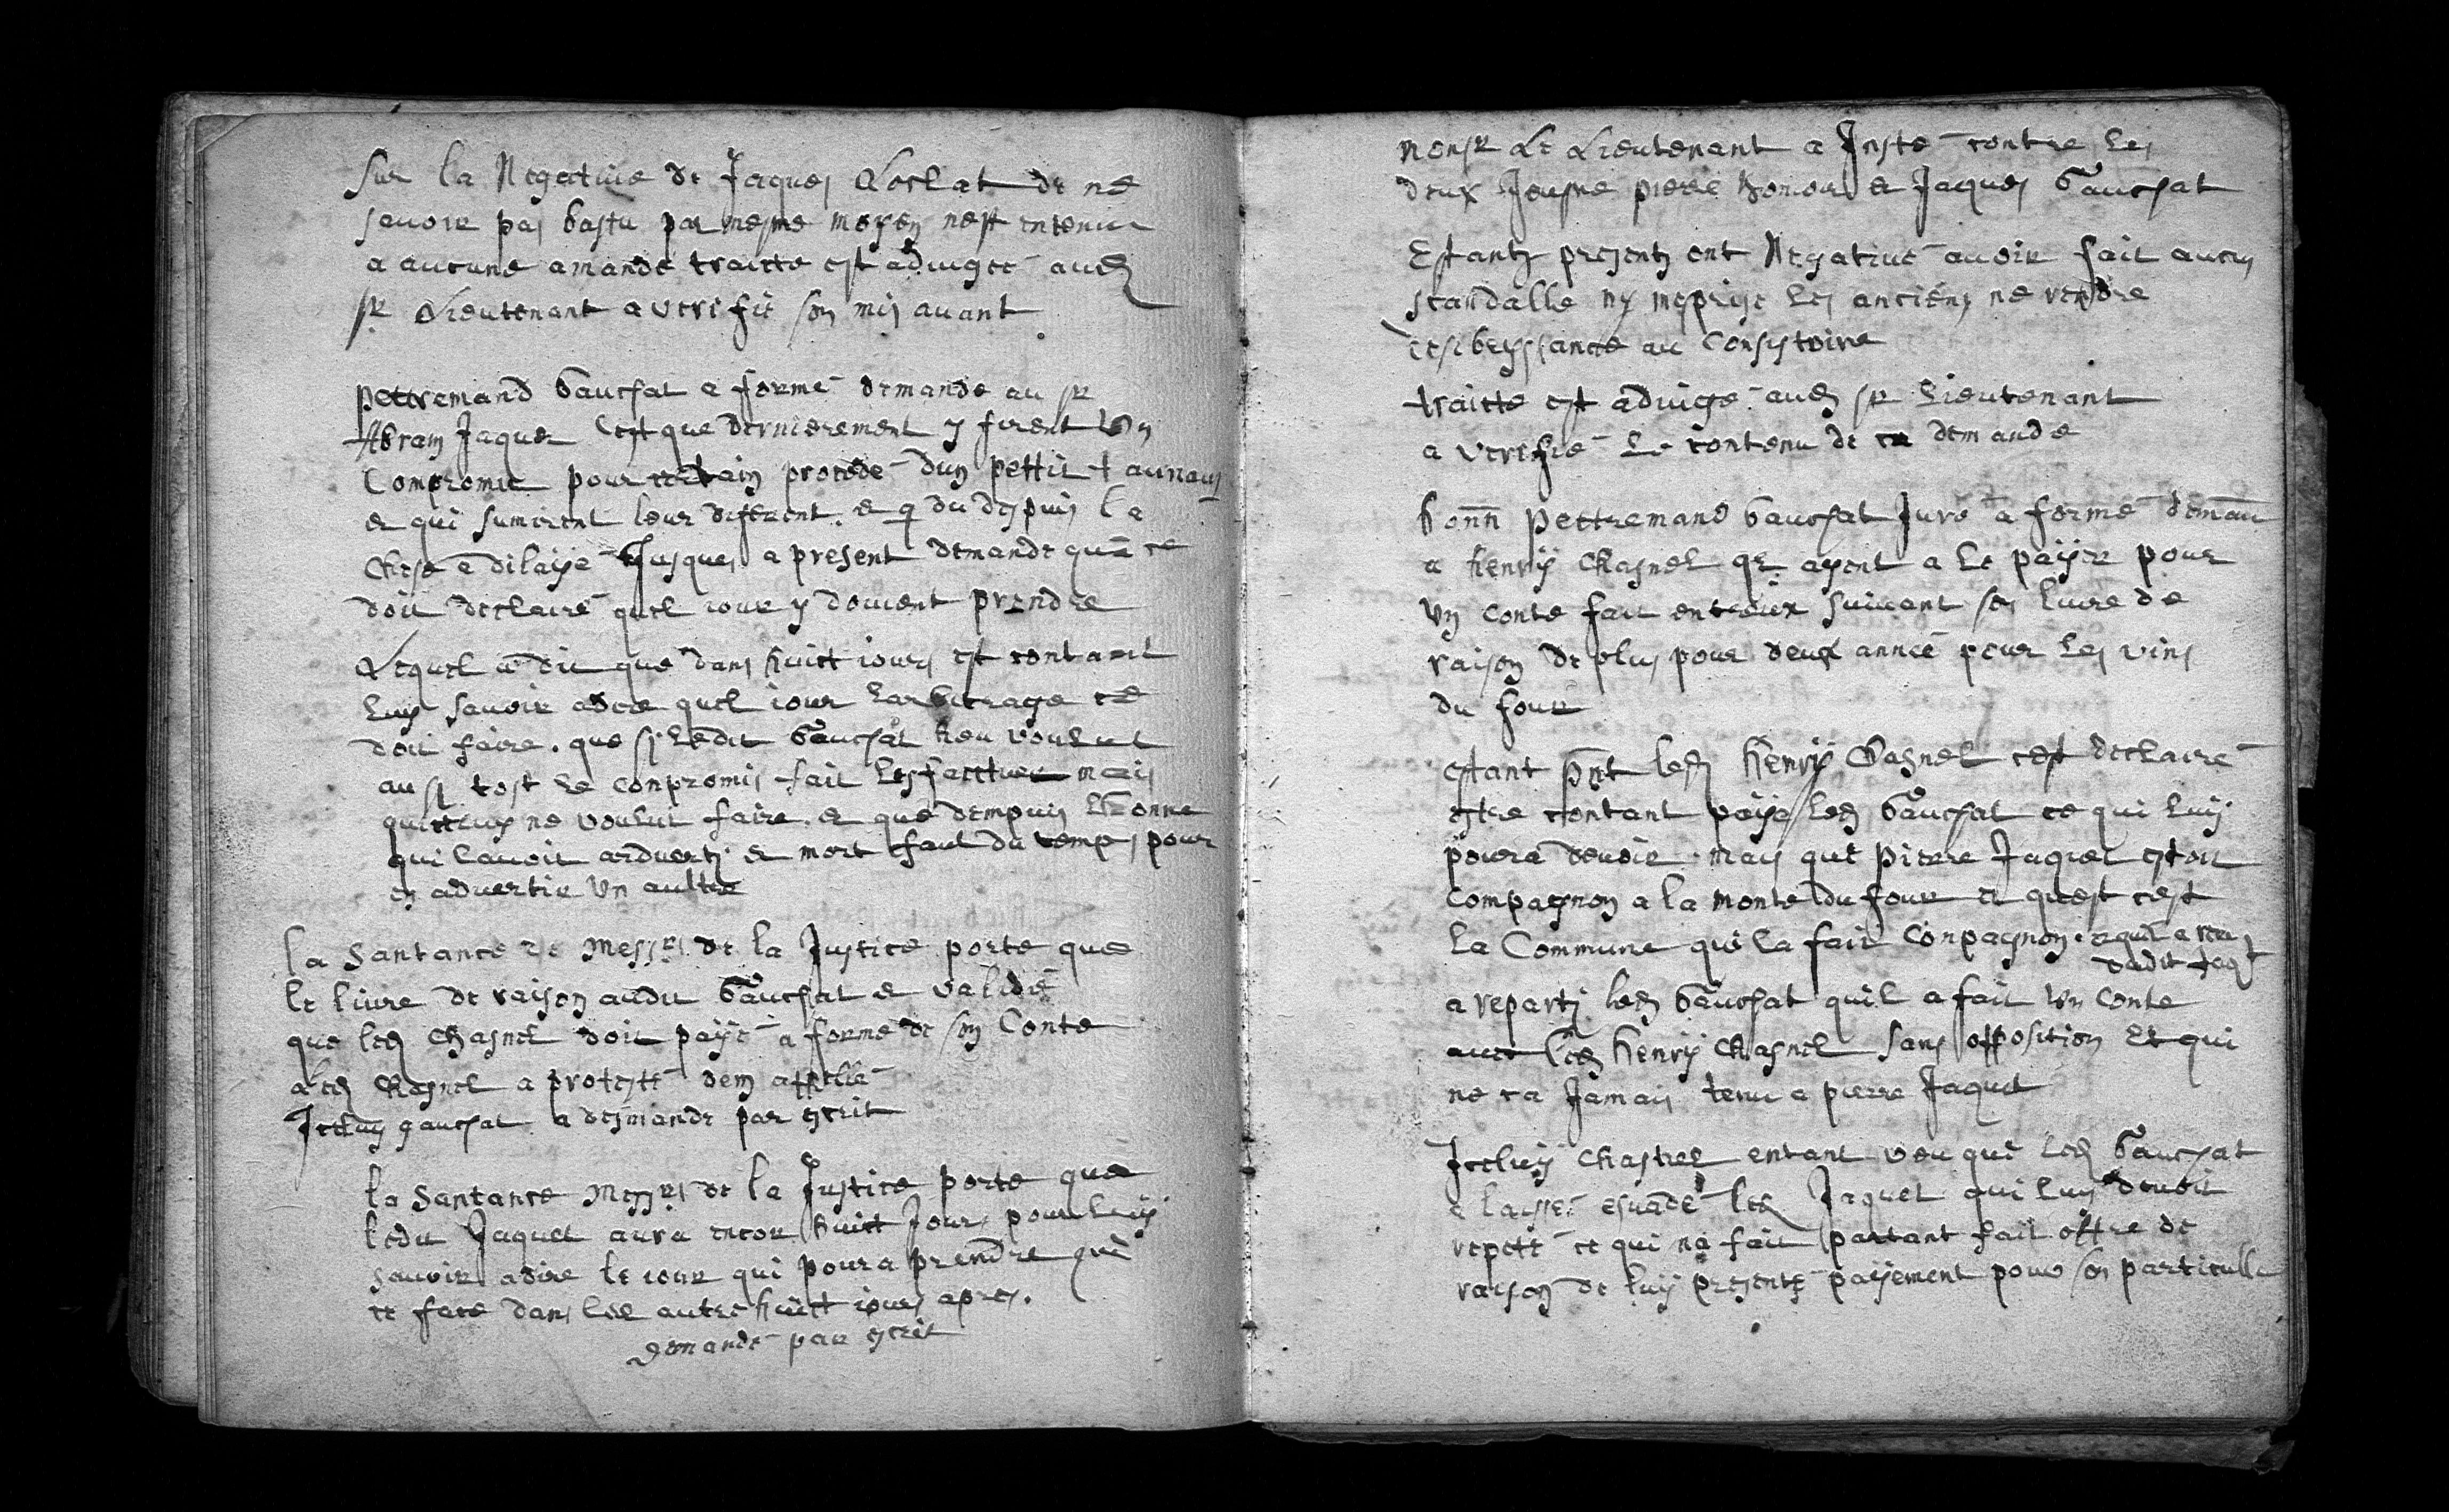 Sur la Negative de Jaques Loclat de ne
senoir pas bastu par mesme moyen nest entenu
a aucune amande traitte est adiugee aud
sr Lieutenant a verifie son mis auant
pettremand Gauchat a forme demande au sr
Abram Jaquet cest que dernierement y firent un
Compromis pour certain procede dun pettit
et qui sumirent leur diferent et q du despuis la
chose a dilaye Jusques a present demande que ce
doit declaire quel iour y doiuent prendre
Lequel a dit que dans huitt iours est contant
luy sauoir adire quel iour larbitrage ce
doit faire. que sy ledit Gauchat heu voulut
ausy tost le conpromis fait mais
ne voulut faire. et que dempuis lhonne
qui lauoit arduerty et mort faut du temps pour
en aduertir un aultre
la Santance de Messrs de la Justice porte que
le liure de raison dudit Gauchat et valide
que led Chasnel doit paije a forme de son Conte
led Chasnel a proteste dem appelle
Iceluy gauchat a desmande par escrit
la Santance Messrs de la Justice porte que
ledit Jaquet aura encor huitt Jours pour luy
sauoir adire le iour qui poura prendre que
ce face dans les autre huitt iours apres.
demande par escrit
monsr Le Lieutenant a Inste contre les
deux Jeusne pierre et Jaques Gauchat
Estants presents ont Negatiue auoir fait aucun
scandalle ny meprise les anciens ne rendre
desobeyssance au Consystoire
traitte est adiuge aud sr Lieutenant
a verifie le contenu de sa demande
honn Pettremand Gauchat Jure a forme deman
a henrij Chasnel qr ayent a le paijer pour
un conte fait entreux suiuant son liure de
raison de plus pour deux annee pour les vins
du four
estant pnt led Henrij Chasnel cest declaire
estre contant paije led Gauchat ce qui luij
poura deuoir mais que Pierre Jaquet estoit
compagnon a la monte du four et quest cest
la Commune qui la fait Conpagnon
a reparty led Gauchat quil a fait un conte
auec led Henrij Chasnel sans opposition et qui
ne ca Jamais tenu a pierre Jaquet
Iceluij Chasnel entant veu que led Gauchat
a laisse esuade led Jaquet qui luy deuoit
repete ce qui na fait partant fait offre de
raison de luij presente paijement pour son particulle